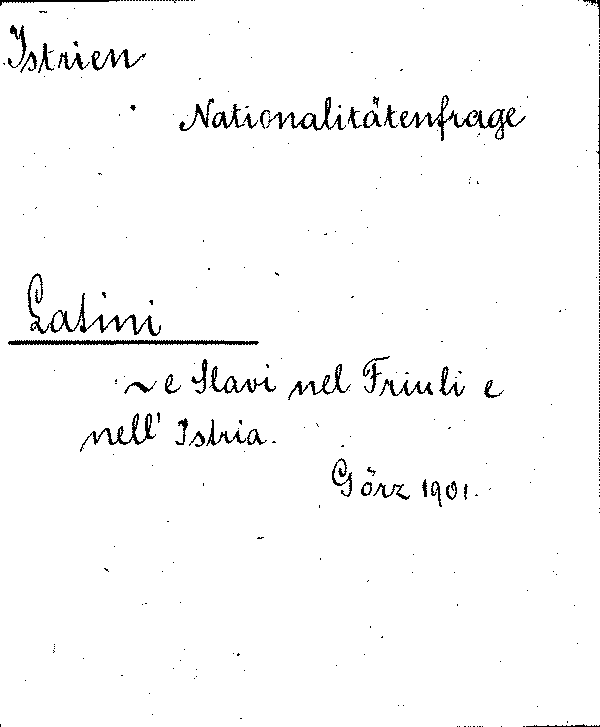 Istrien
Nationalitätenfrage
Latini
~ e Slavi nel Friuli e
nell' Istria.
Görz 1901.